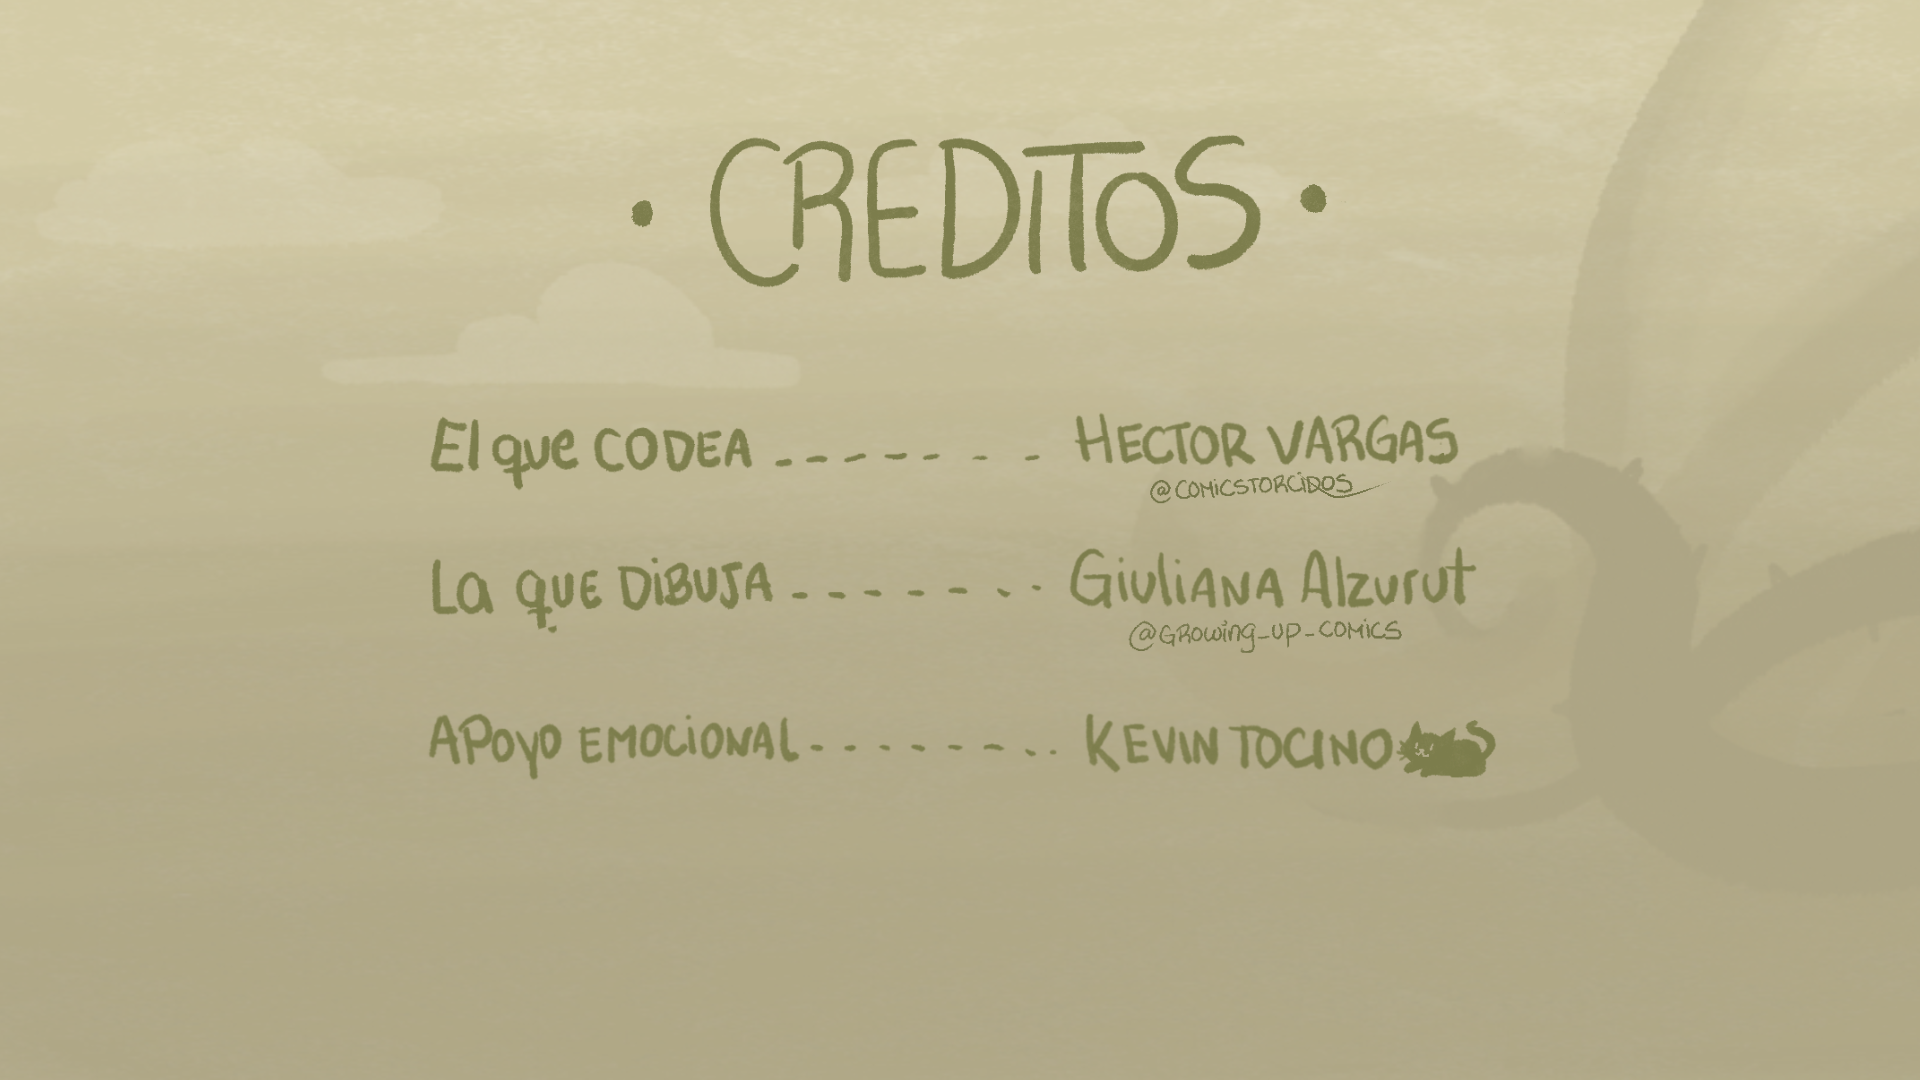 • CREDITOS •
El que CODEA ------- HECTOR VARGAS
@COMICSTORCIDOS
La que DIBUJA ------- Giuliana Alzurut
@GROWING_UP_COMICS
APOYO EMOCIONAL -------- KEVIN TOCINO